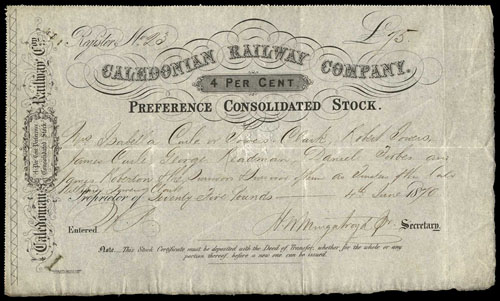 Register No. 23 £75
CALEDONIAN RAILWAY COMPANY.
4 PER CENT
PREFERENCE CONSOLIDATED STOCK.
Mrs Isabella or Clark Robert
James George Readman Daniel Forbes and
James Robertson of the
William Clark
Proprietor of Seventy Five Pounds 4th June 1870
Entered Secretary.
Note.— This Stock Certificate must be deposited with the Deed of Transfer, whether for the whole or any
portion thereof, before a new one can be issued.
Caledonian Railway Coy.
4 Per Cent Preference
Consolidated Stock